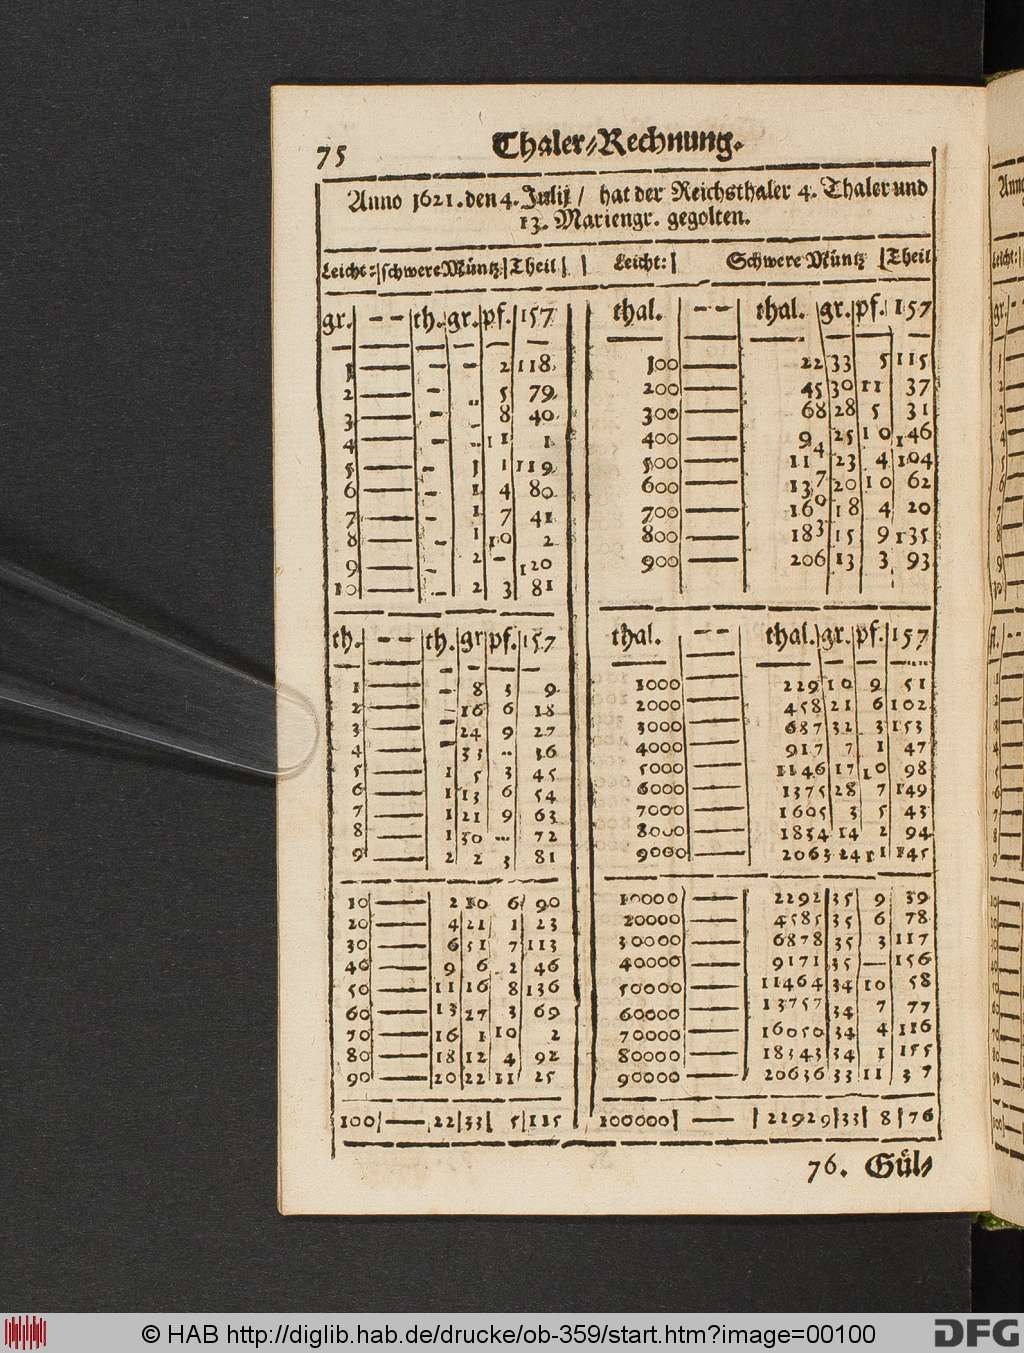 75 Thaler-Rechnung.
Anno 1621. den 4. Julij / hat der Reichsthaler 4. Thaler und
13. Mariengr. gegolten.
Leicht: schwere Müntz Theil
gr. -- th. gr. pf. 157
1 — - - 2 118
2 — - .. 5 79
3 — - .. 8 40
4 — - .. 11 1
5 — - 1 1 119
6 — - 1 4 80
7 — - 1 7 41
8 — - 1 10 2
9 — - 2 - 120
10 — - 2 3 81
th. -- th. gr pf. 157
1 — - 8 3 9
2 — - 16 6 18
3 — - 24 9 27
4 — - 33 .. 36
5 — 1 5 3 45
6 — 1 13 6 54
7 — 1 21 9 63
8 — 1 30 ... 72
9 — 2 2 3 81
10 — 2 10 6 90
20 — 4 21 1 23
30 — 6 31 7 113
40 — 9 6 2 46
50 — 11 16 8 136
60 — 13 27 3 69
70 — 16 1 10 2
80 — 18 12 4 92
90 — 20 22 11 25
100 — 22 33 5 115
Leicht: Schwere Müntz Theil
thal. -- thal. gr. pf. 157
100 — 22 33 5 115
200 — 45 30 11 37
300 — 68 28 5 31
400 — 94 25 10 146
500 — 114 23 4 104
600 — 137 20 10 62
700 — 160 18 4 20
800 — 183 15 9 135
900 — 206 13 3 93
thal. -- thal. gr. pf. 157
1000 — 229 10 9 51
2000 — 458 21 6 102
3000 — 687 32 3 153
4000 — 917 7 1 47
5000 — 1146 17 10 98
6000 — 1375 28 7 149
7000 — 1605 3 5 43
8000 — 1834 14 2 94
9000 — 2063 24 11 145
10000 — 2292 35 9 39
20000 — 4585 35 6 78
30000 — 6878 35 3 117
40000 — 9171 35 — 156
50000 — 11464 34 10 58
60000 — 13757 34 7 77
70000 — 16050 34 4 116
80000 — 18343 34 1 155
90000 — 20636 33 11 37
100000 — 22929 33 8 76
76. Gül-
© HAB http://diglib.hab.de/drucke/ob-359/start.htm?image=00100
DFG